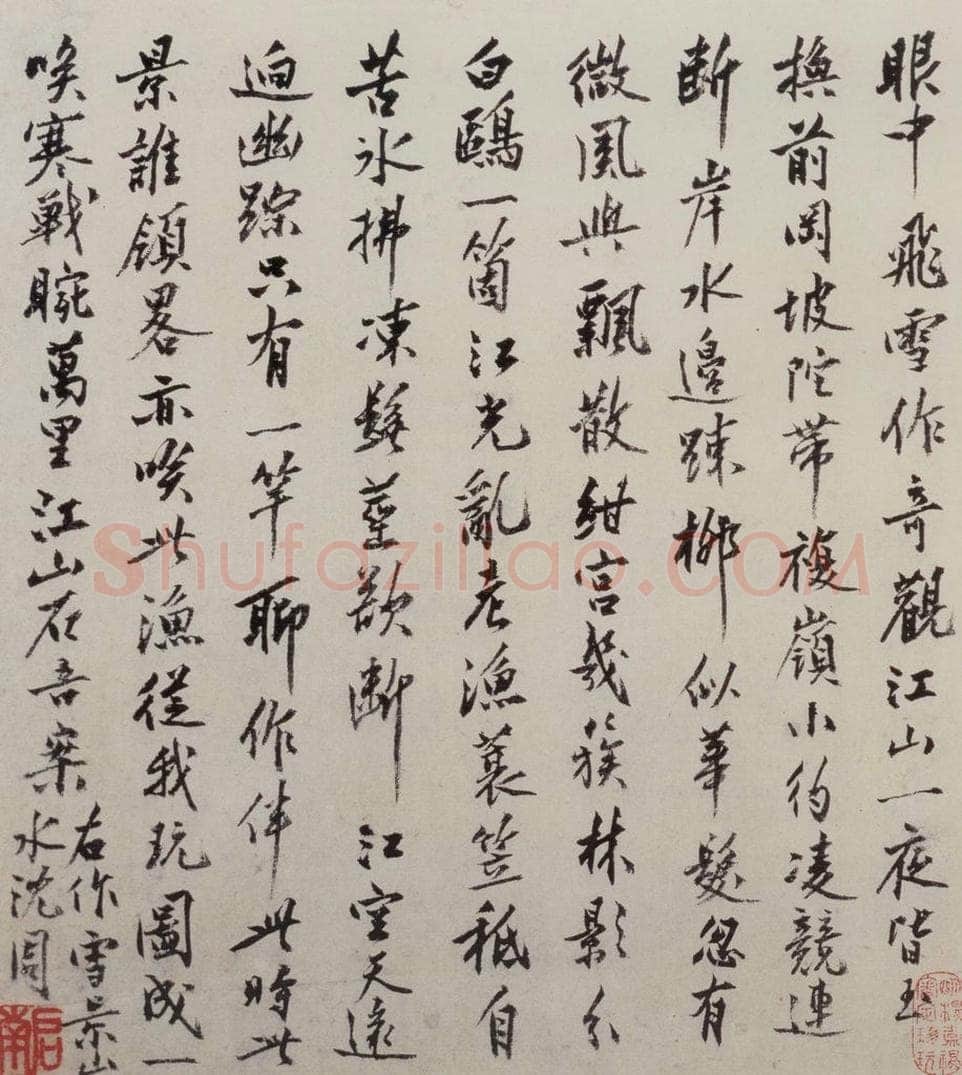 眼中飛雪作奇觀江山一夜皆玉
換前岡坡陀帶複嶺小彴凌競連
斷岸水邊踈柳似華髮忽有
微風與飄散紺宮幾簇林影分
白鷗一箇江光亂老漁蓑笠秪自
苦氷拂凍鬚莖欲斷江空天遠
逈幽踪只有一竿聊作伴此時此
景誰領畧亦咲此漁從我玩圖成一
咲寒戰腕萬里江山在吾案
右作雪景山
水沈周
啟南
Shufaziliao.COM